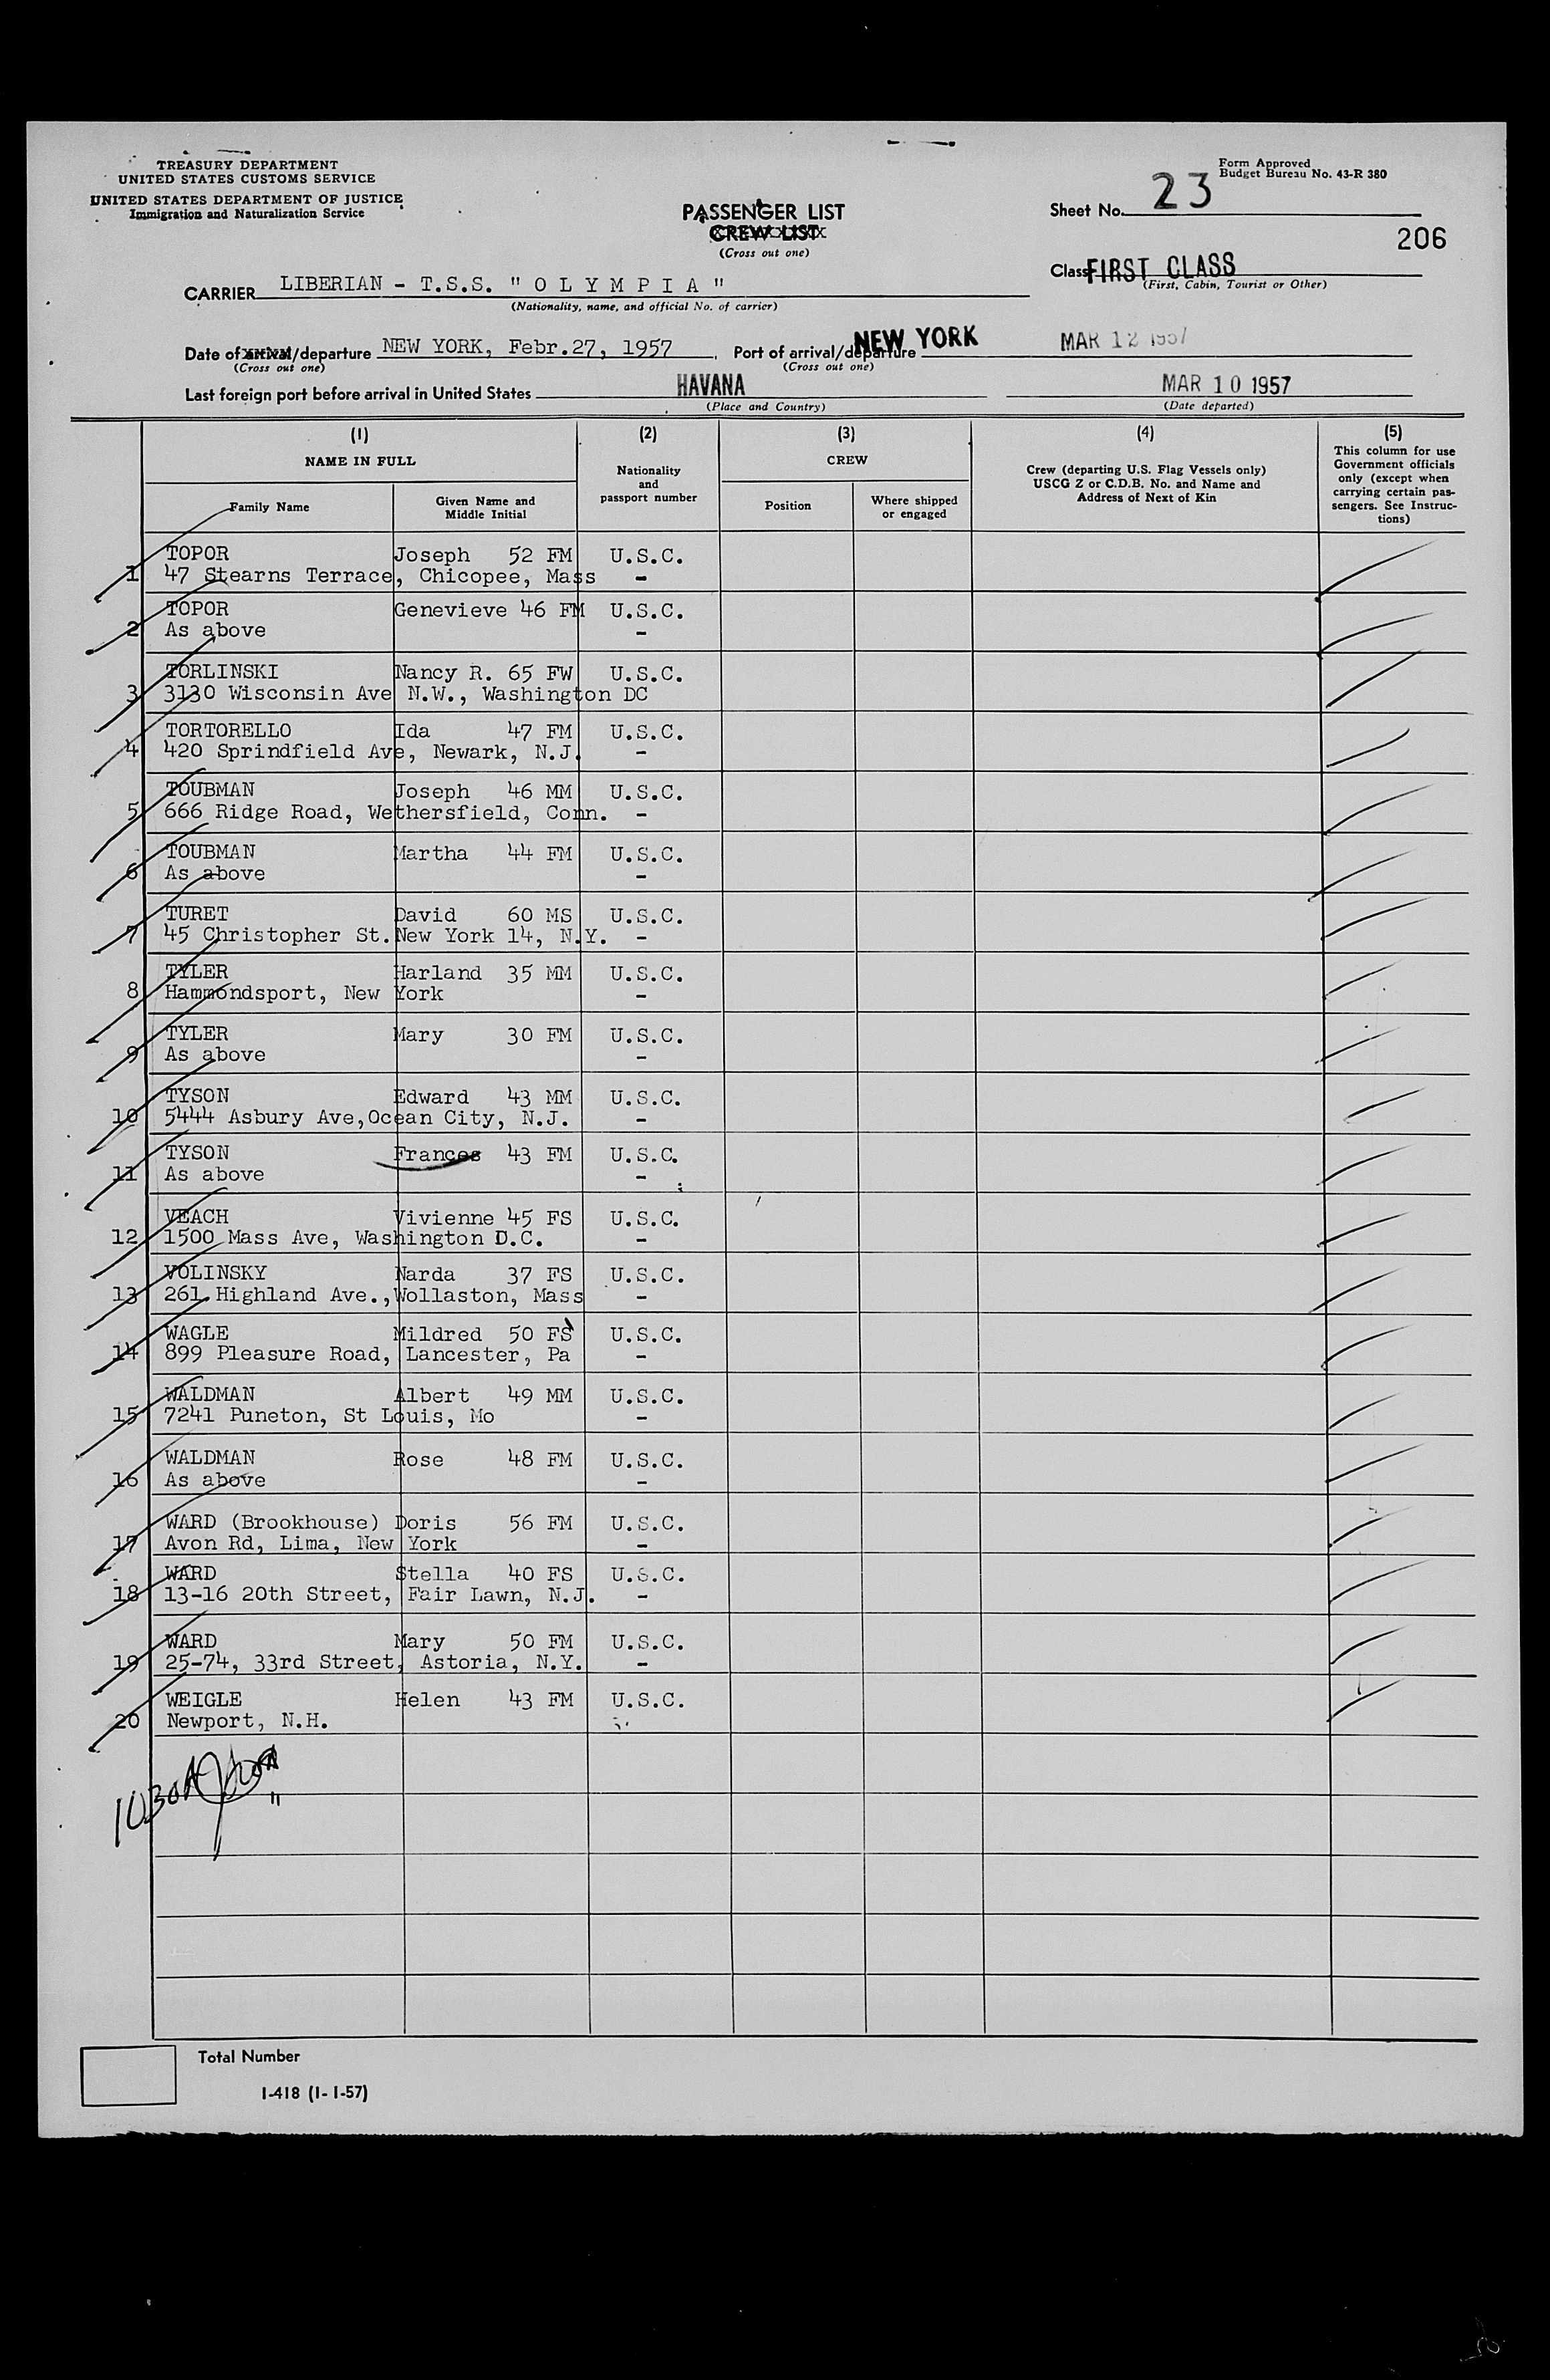 TREASURY DEPARTMENT
UNITED STATES CUSTOMS SERVICE
UNITED STATES DEPARTMENT OF JUSTICE
Immigration and Naturalization Service
Form Approved
Budget Bureau No. 43-R 380
PASSENGER LIST
CREW LIST
(Cross out one)
Sheet No. 23
206
Class FIRST CLASS
(First, Cabin, Tourist or Other)
CARRIER LIBERIAN - T.S.S. " O L Y M P I A "
(Nationality, name, and official No. of carrier)
Date of arrival/departure NEW YORK, Febr.27, 1957, Port of arrival/departure NEW YORK MAR 12 1957
(Cross out one) (Cross out one)
Last foreign port before arrival in United States HAVANA MAR 10 1957
(Place and Country) (Date departed)
(1) (2) (3) (4) (5)
NAME IN FULL
Family Name
Given Name and
Middle Initial
Nationality
and
passport number
CREW
Position
Where shipped
or engaged
Crew (departing U.S. Flag Vessels only)
USCG Z or C.D.B. No. and Name and
Address of Next of Kin
This column for use
Government officials
only (except when
carrying certain pas-
sengers. See Instruc-
tions)
TOPOR Joseph 52 FM U.S.C.
1 47 Stearns Terrace, Chicopee, Mass -
TOPOR Genevieve 46 FM U.S.C.
2 As above -
TORLINSKI Nancy R. 65 FW U.S.C.
3 3130 Wisconsin Ave N.W., Washington DC
TORTORELLO Ida 47 FM U.S.C.
4 420 Sprindfield Ave, Newark, N.J. -
TOUBMAN Joseph 46 MM U.S.C.
5 666 Ridge Road, Wethersfield, Conn. -
TOUBMAN Martha 44 FM U.S.C.
6 As above -
TURET David 60 MS U.S.C.
7 45 Christopher St. New York 14, N.Y. -
TYLER Harland 35 MM U.S.C.
8 Hammondsport, New York -
TYLER Mary 30 FM U.S.C.
9 As above -
TYSON Edward 43 MM U.S.C.
10 5444 Asbury Ave,Ocean City, N.J. -
TYSON Frances 43 FM U.S.C.
11 As above -
VEACH Vivienne 45 FS U.S.C.
12 1500 Mass Ave, Washington D.C. -
VOLINSKY Narda 37 FS U.S.C.
13 261 Highland Ave.,Wollaston, Mass -
WAGLE Mildred 50 FS U.S.C.
14 899 Pleasure Road, Lancester, Pa -
WALDMAN Albert 49 MM U.S.C.
15 7241 Puneton, St Louis, Mo -
WALDMAN Rose 48 FM U.S.C.
16 As above -
WARD (Brookhouse) Doris 56 FM U.S.C.
17 Avon Rd, Lima, New York -
WARD Stella 40 FS U.S.C.
18 13-16 20th Street, Fair Lawn, N.J. -
WARD Mary 50 FM U.S.C.
19 25-74, 33rd Street, Astoria, N.Y. -
WEIGLE Helen 43 FM U.S.C.
20 Newport, N.H.
Total Number
I-418 (1-1-57)